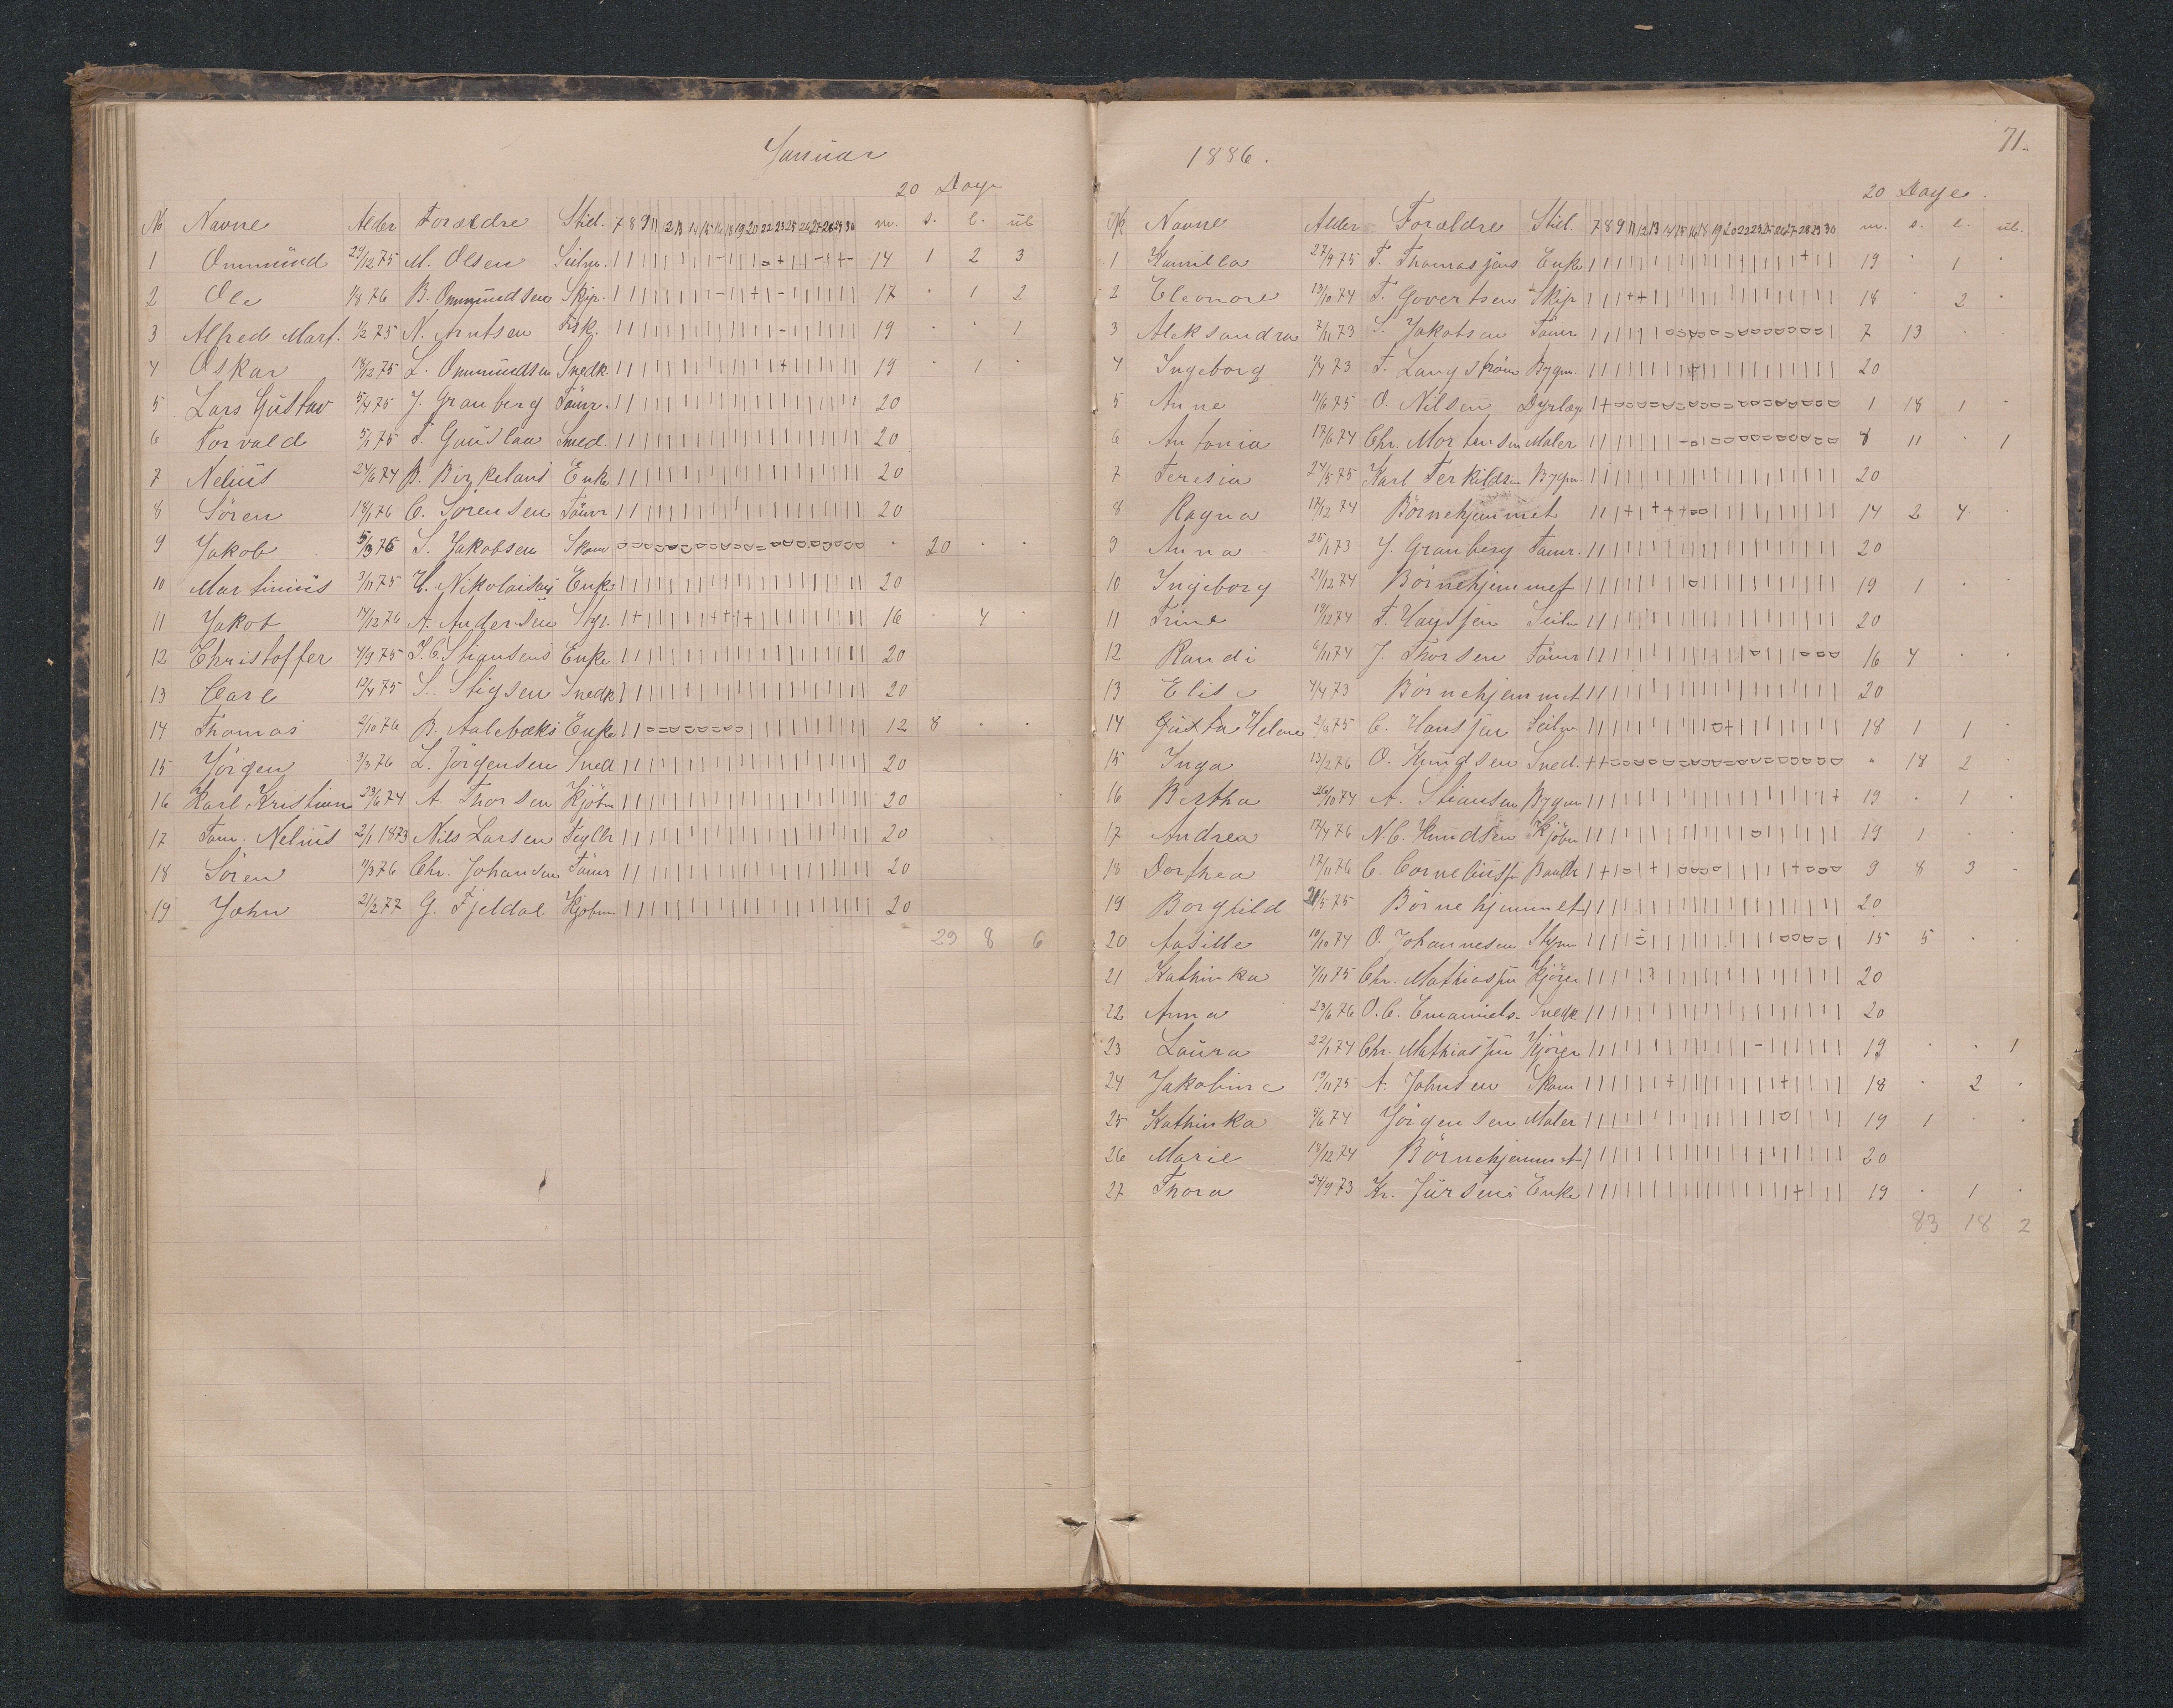 Januar
20 Dage
No Navne Alder Forældre Stil. 7 8 9 11 12 13 14 15 16 18 19 20 22 23 25 26 27 28 29 30 m. s. l. ul.
1 Ommund 24/12 75 M. Olsen 14 1 2 3
2 Ole 1/8 76 B. Ommundsen Skip. 17 · 1 2
3 Alfred Mart. 1/2 75 N. Arntsen Fisk. 19 · · 1
4 Oskar 18/12 75 L. Ommundsen Snedk. 19 · 1 ·
5 Lars Gustav 5/4 75 J. Granberg Tømr. 20
6 Torvald 5/1 75 Smed. 20
7 Nelius 24/6 74 B. Birkelands Enke 20
8 Sören 18/1 76 C. Sörensen Tømr 20
9 Jakob 5/3 76 S. Jakobsen Skom · 20 · ·
10 Martinius 3/11 75 Enke 20
11 Jakob 17/12 76 A. Andersen 16 · 4 ·
12 Christoffer 4/9 75 Stiansens Enke 20
13 Carl 12/4 75 S. Stigsen Snedk 20
14 Thomas 2/10 76 B. Aalebæks Enke 12 8 · ·
15 Jörgen 3/3 76 L. Jörgensen Smed 20
16 Karl Kristian 23/6 74 A. Thorsen Kjöbm 20
17 Tom. Nelius 2/1 1873 Nils Larsen Teglbr 20
18 Sören 11/3 76 Chr. Johansen Tømr 20
19 John 21/2 77 G. Fjeldal Kjøbm 20
29 8 6
71.
1886.
20 Dage
No Navne Alder Forældre Stil. 7 8 9 11 12 13 14 15 16 18 19 20 22 23 25 26 27 28 29 30 m. s. l. ul.
1 Kamilla 27/9 75 T. Thomasjøns Enke 19 · 1 ·
2 Eleonore 13/10 74 T. Govertsen Skip 18 · 2 ·
3 Aleksandra 7/11 73 S. Jakobsen Tømr 7 13 ·
4 Ingeborg 1/4 73 T. Langström Bygm. 20
5 Anne 11/6 75 O. Nilsen Dyrlæge 1 18 1 ·
6 Antonia 17/6 74 Chr. Mortensen Maler 8 11 · 1
7 Teresia 24/5 75 Karl Terkildsen Bygm. 20
8 Ragna 17/12 74 Börnehjemmet 14 2 4 ·
9 Anna 25/1 73 J. Granberg Tømr. 20
10 Ingeborg 21/12 74 Börnehjemmet 19 1 · ·
11 Trine 19/12 74 20
12 Randi 6/11 74 J. Thorsen Tømr 16 4 · ·
13 Elise 4/4 73 Börnehjemmet 20
14 Gusta Helene C. Hansjøn Seilm 18 1 1 ·
15 Inga 13/2 76 O. Knudsen Smed. · 18 2 ·
16 Bertha 26/10 74 A. Stiansen Bygm 19 · 1 ·
17 Andrea 17/4 76 N.C. Knudsen Kjöbm 19 1 · ·
18 Dorthea 17/11 76 9 8 3 ·
19 Borghild 21/5 75 Börnehjemmet 20
20 Aasille 10/10 74 O. Johannesen Styrm 15 5 · ·
21 Kathinka 7/11 75 Chr. Mathiasjøn Kjörer 20
22 Anna 23/6 76 O.C. Emaniels. Snedk 20
23 Laura 22/1 74 Chr. Mathiasjøn Kjörer 19 · · 1
24 Jakobine 19/11 75 A. Johnsen Skom 18 · 2 ·
25 Kathinka 5/6 74 Jörgensen Maler 19 1 · ·
26 Marie 18/12 74 Börnehjemmet 20
27 Thora 24/9 73 Kr. Jürsens Enke 19 · 1 ·
83 18 2